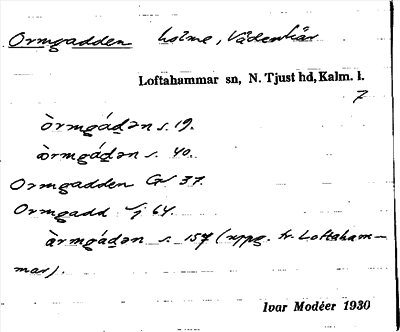 Ormgadden holme, Vådenskär
Loftahammar sn, N. Tjust hd, Kalm. l.
7
òrmgád̲ən s. 19.
òrmgád̲ən s. 40.
Ormgadden GV 37.
Ormgadd Sj 64.
àrmgád̲ən s. 157 (uppg. fr. Loftaham-
mar).
Ivar Modéer 1930